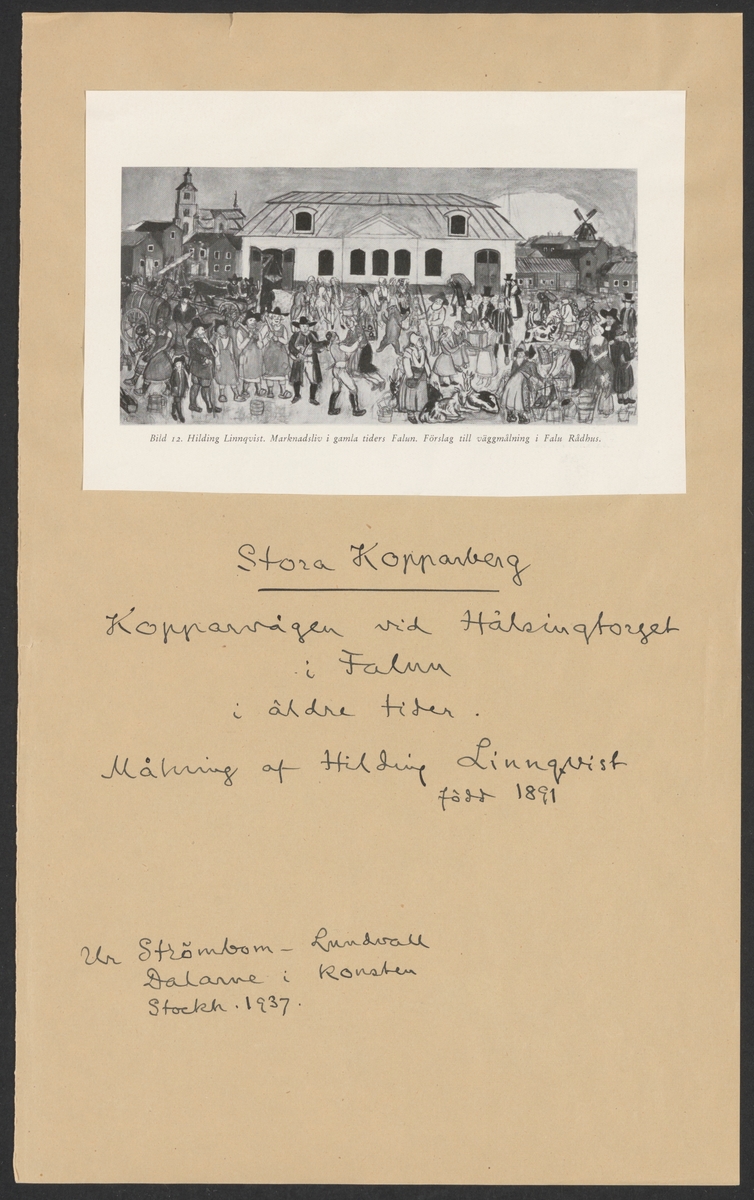 Bild 12. Hilding Linnqvist. Marknadsliv i gamla tiders Falun. Förslag till väggmålning i Falu Rådhus.
Stora Kopparberg
Kopparvågen vid Hälsingtorget
i Falun
i äldre tider.
Målning af Hilding Linnqvist
född 1891
Ur Strömbom - Lundvall
Dalarne i konsten
Stockh. 1937.